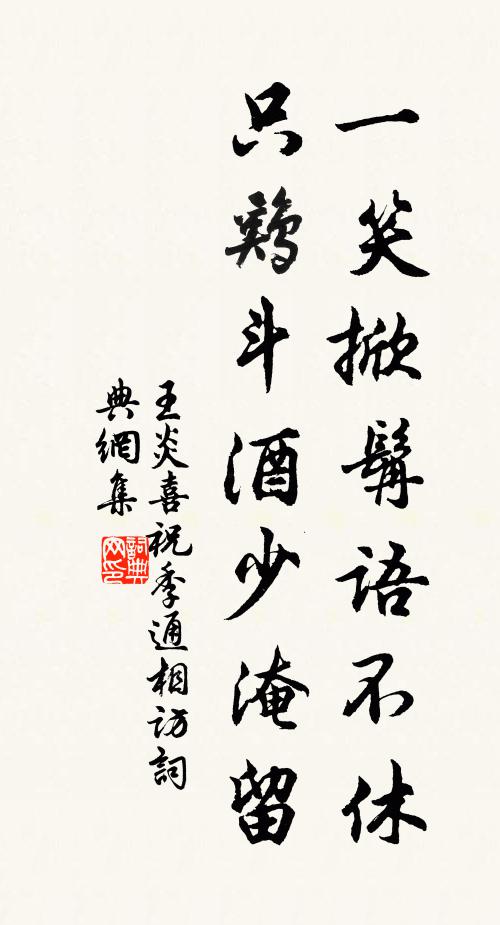 一笑掀髯語不休
只鷄斗酒少淹留
王炎喜祝季通相訪詞
典網集
詞典
网印